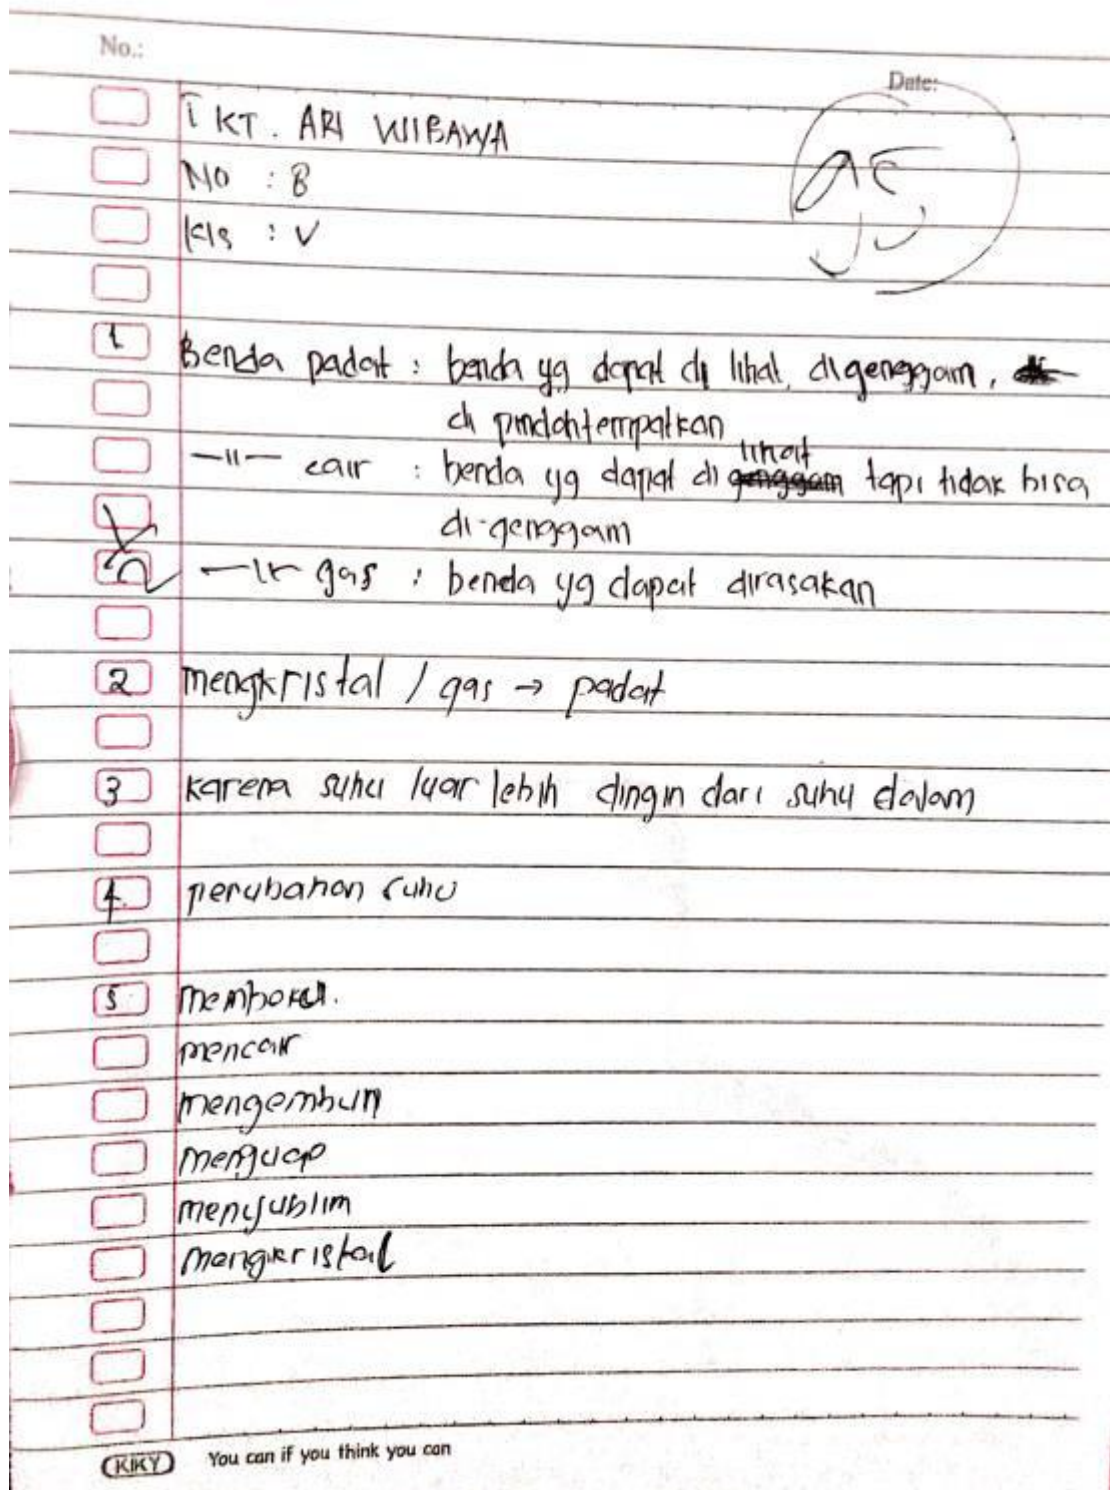 No.:
Date:
I KT. ARI WIBAWA
95
No : 8
Kls : V
1 Benda padat : benda yg dapat di lihat, digenggam,
di pindahtempatkan
—"— cair : benda yg dapat di lihat tapi tidak bisa
di-genggam
2 —"— gas : benda yg dapat dirasakan
2 mengkristal / gas → padat
3 karena suhu luar lebih dingin dari suhu dalam
4. perubahan suhu
5. membeku.
mencair
mengembun
menguap
menyublim
mengkristal
KIKY You can if you think you can